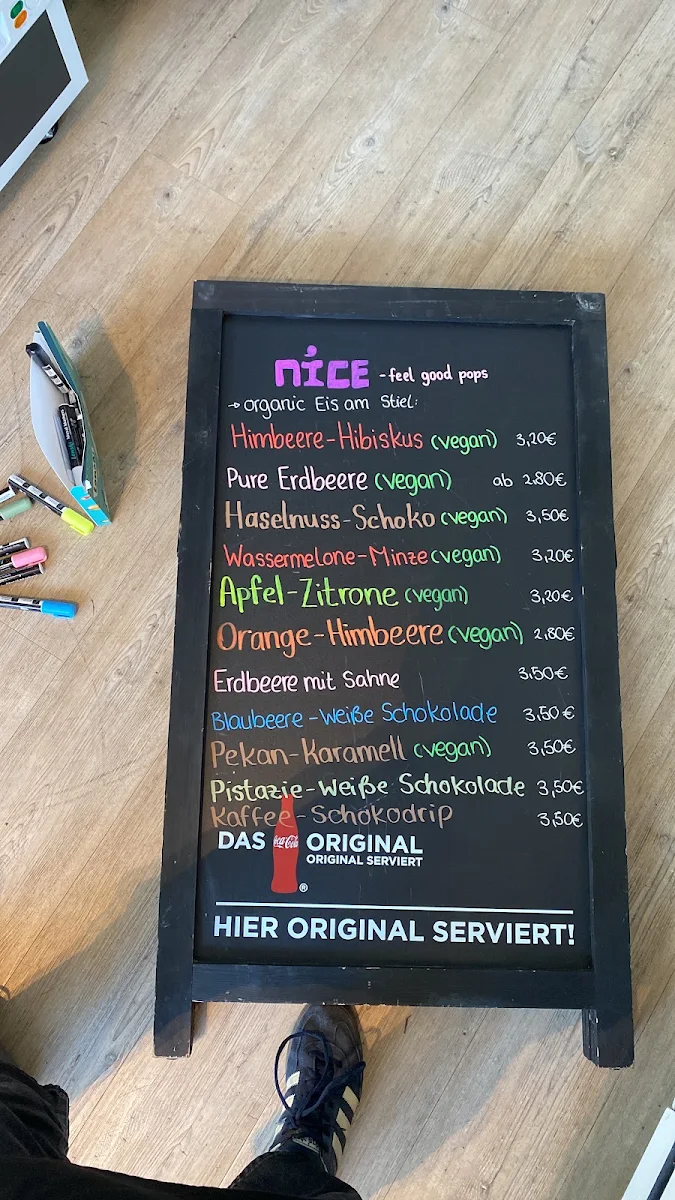 nice - feel good pops
→ organic Eis am Stiel:
Himbeere-Hibiskus (vegan) 3,20€
Pure Erdbeere (vegan) ab 2,80€
Haselnuss-Schoko (vegan) 3,50€
Wassermelone-Minze (vegan) 3,20€
Apfel-Zitrone (vegan) 3,20€
Orange-Himbeere (vegan) 2,80€
Erdbeere mit Sahne 3,50€
Blaubeere-Weiße Schokolade 3,50€
Pekan-Karamell (vegan) 3,50€
Pistazie-Weiße Schokolade 3,50€
Kaffee-Schokodrip 3,50€
DAS Coca-Cola ORIGINAL
ORIGINAL SERVIERT
®
HIER ORIGINAL SERVIERT!